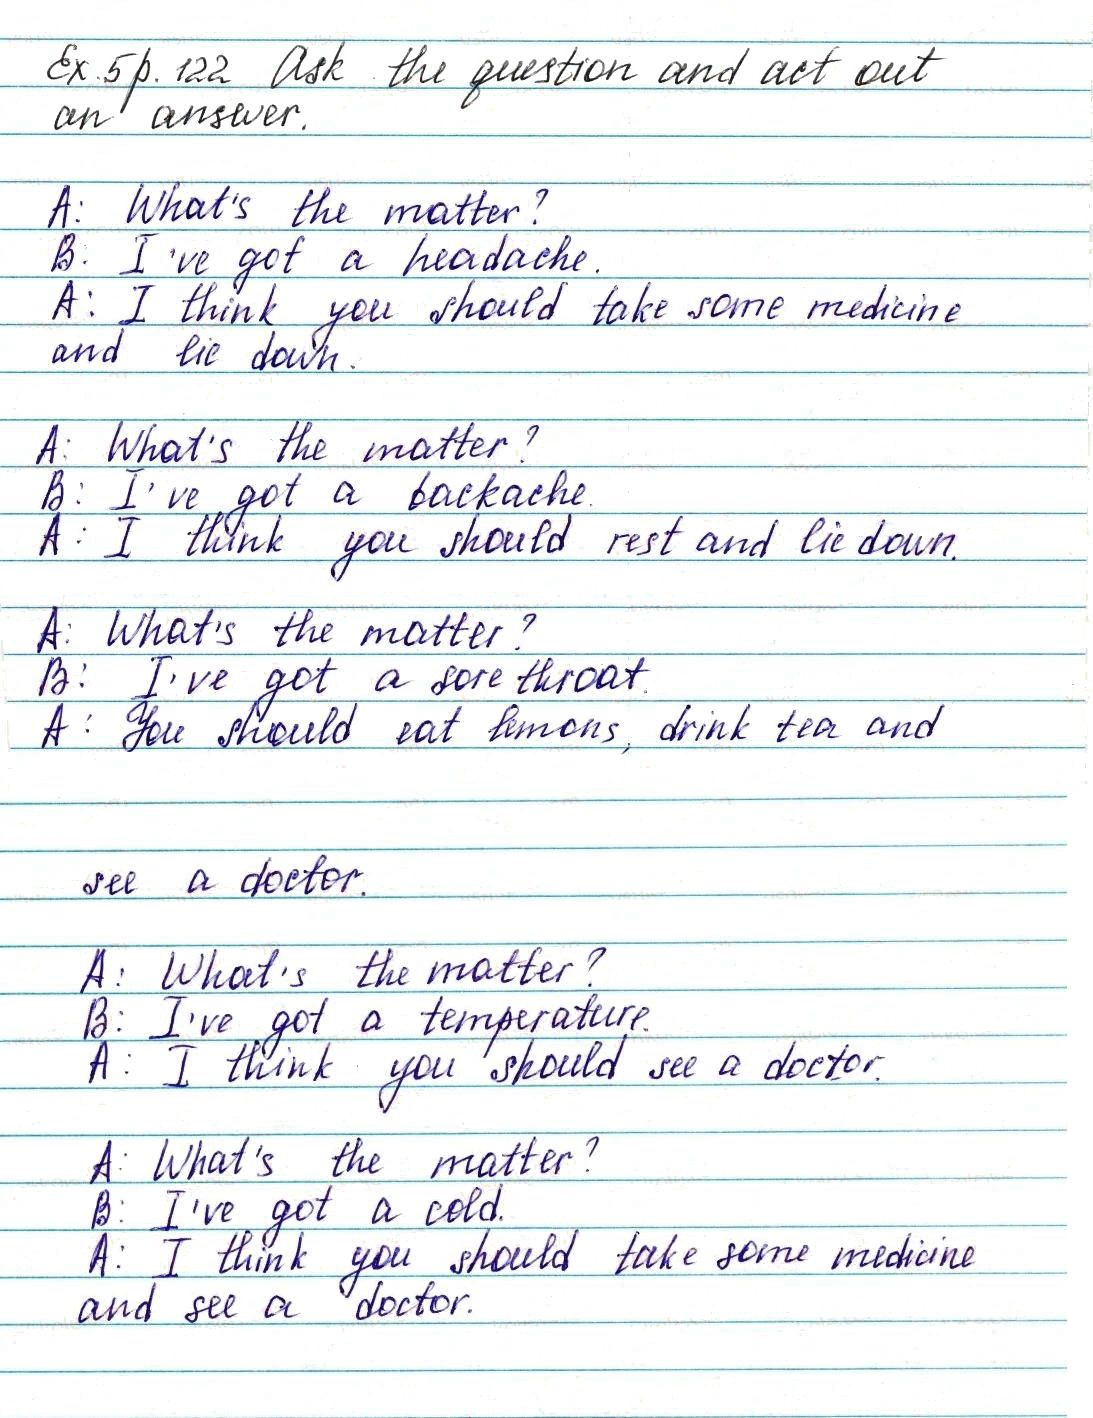 Ex. 5 p. 122 Ask the question and act out
an answer.
A: What's the matter?
B: I've got a headache.
A: I think you should take some medicine
and lie down.
A: What's the matter?
B: I've got a backache.
A: I think you should rest and lie down.
A: What's the matter?
B: I've got a sore throat.
A: You should eat lemons, drink tea and
see a doctor.
A: What's the matter?
B: I've got a temperature.
A: I think you should see a doctor.
A: What's the matter?
B: I've got a cold.
A: I think you should take some medicine
and see a doctor.